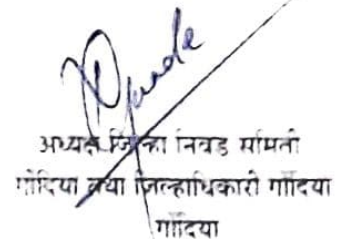 अध्यक्ष जिल्हा निवड समिती
गोंदिया तथा जिल्हाधिकारी गोंदिया
गोंदिया